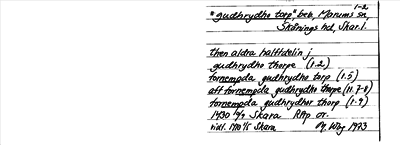 1-2
"gudhrydho torp", beb, Marums sn,
Skånings hd, Skar.l.
then aldra halffdelin j
gudhrydho thorpe (1.2)
fornempda gudhrydho torp (1.5)
aff fornempda gudhrydho thorpe (11.7-8)
fornempda gudhrydhor thorp (1.9)
1430 Skara RAp or.
Skara 1973